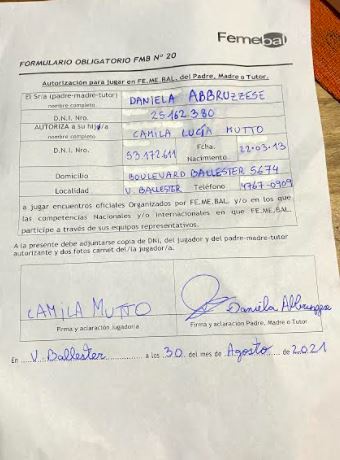 Femebal
FORMULARIO OBLIGATORIO FMB Nº 20
Autorización para jugar en FE.ME.BAL. del Padre, Madre o Tutor.
El Sr/a (padre-madre-tutor) DANIELA ABBRUZZESE
nombre completo
D.N.I. Nro. 25162380
AUTORIZA a su hijo/a CAMILA LUCÍA MUTTO
nombre completo
D.N.I. Nro. 53172611 Fcha. Nacimiento 22-03-13
Domicilio BOULEVARD BALLESTER 5674
Localidad V. BALLESTER Teléfono 4767-0909
a jugar encuentros oficiales Organizados por FE.ME.BAL. y/o en los que
las competencias Nacionales y/o Internacionales en que FE.ME.BAL.
participe a través de sus equipos representativos.
A la presente debe adjuntarse copia de DNI, del jugador y del padre-madre-tutor
autorizante y dos fotos carnet del/la jugador/a.
CAMILA MUTTO Daniela Abbruzzese
Firma y aclaración Jugador/a Firma y aclaración Padre, Madre o Tutor
En V. Ballester a los 30 del mes de Agosto de 2021